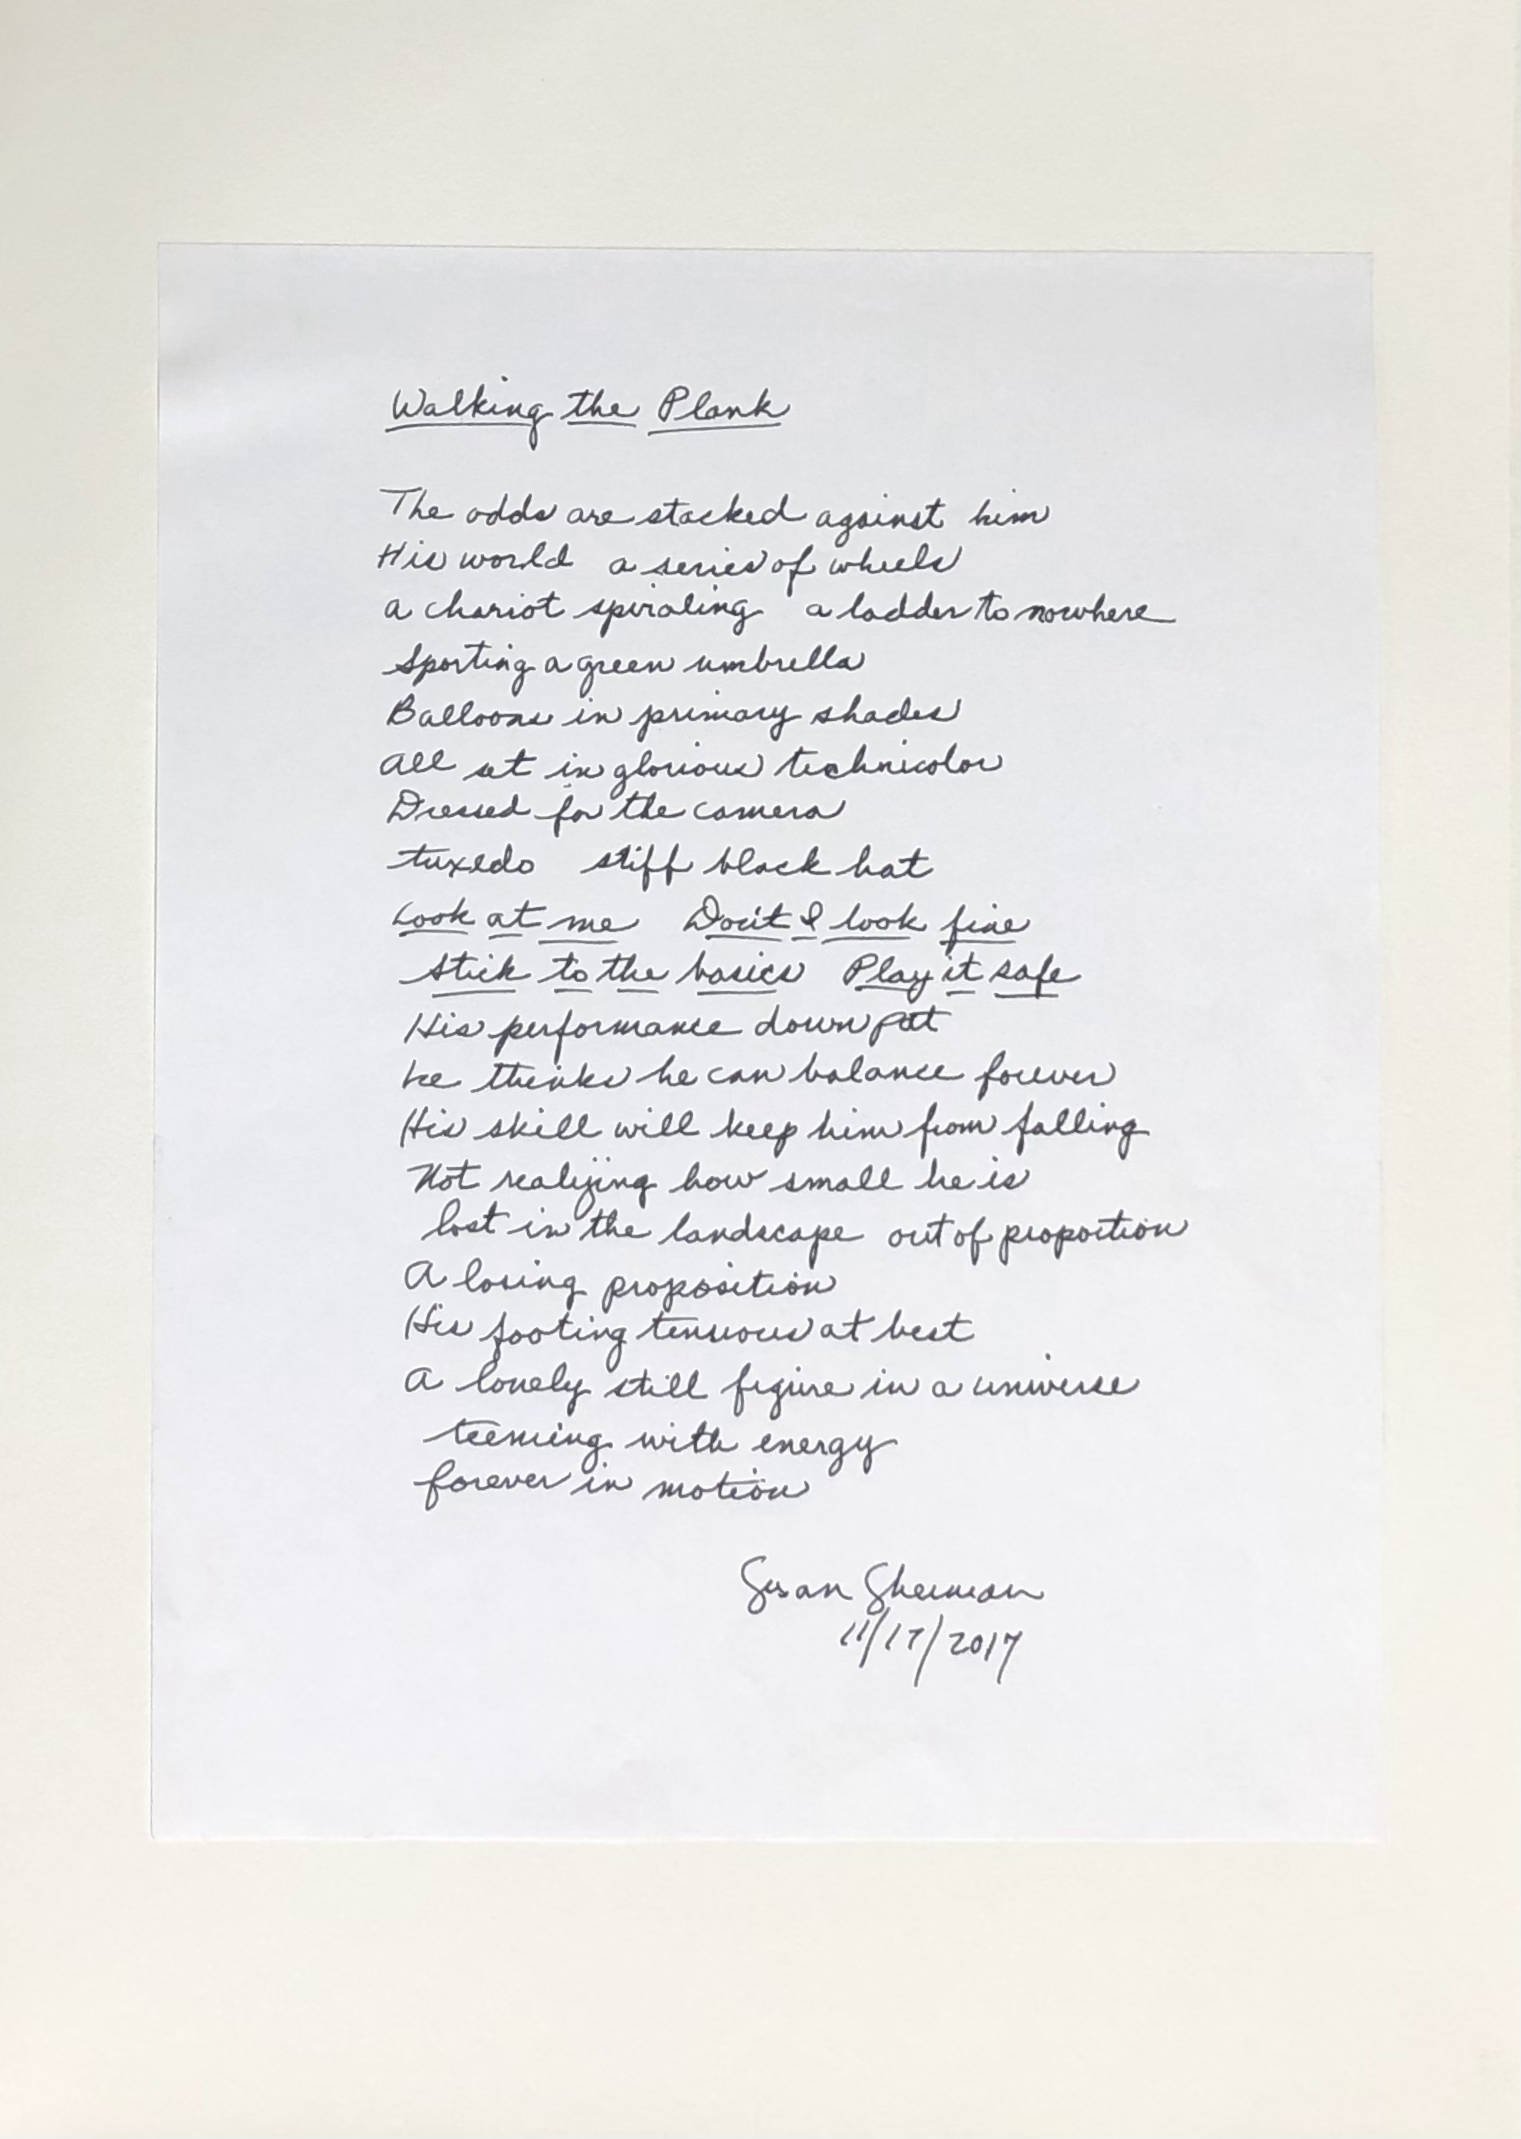 Walking the Plank
The odds are stacked against him
His world a series of wheels
a chariot spiraling a ladder to nowhere
Sporting a green umbrella
Balloons in primary shades
all set in glorious technicolor
Dressed for the camera
tuxedo stiff black hat
Look at me Don't I look fine
Stick to the basics Play it safe
His performance down pat
he thinks he can balance forever
His skill will keep him from falling
Not realizing how small he is
lost in the landscape out of proportion
A losing proposition
His footing tenuous at best
A lonely still figure in a universe
teeming with energy
forever in motion
Susan Sherman
11/17/2017